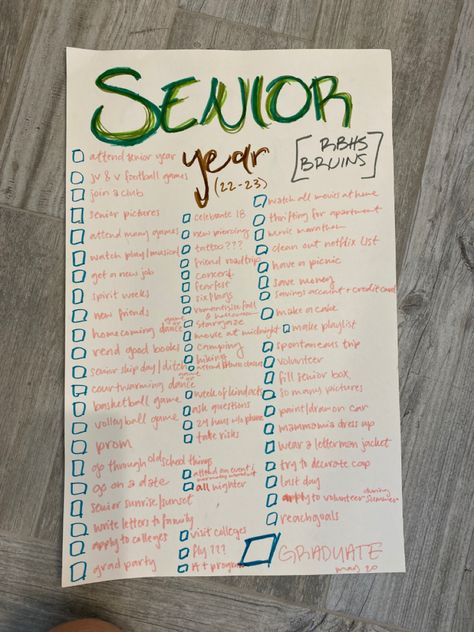 SENIOR
year
(22-23)
RBHS
BRUINS
attend senior year
jv & v football games
join a club
senior pictures
attend many games
watch play/musical
get a new job
spirit weeks
new friends
homecoming dance
read good books
senior skip day/ditch
courtwarming dance
basketball game
volleyball game
prom
go through old school things
go on a date
senior sunrise/sunset
write letters to family
apply to colleges
grad party
celebrate 18
new piercings
tattoo???
friend roadtrip
concert
fearfest
six flags
romanticize fall
& halloween
stargaze
movie at midnight
camping
hiking
attend fitness classes
week of kind acts
ask questions
24 hrs w/o phone
take risks
attend an event/
all nighter
visit colleges
fly???
A+ program
watch all movies at home
thrifting for apartment
movie marathon
clean out netflix list
have a picnic
save money
savings account + credit card
make a cake
make playlist
spontaneous trip
volunteer
fill senior box
so many pictures
paint/draw on car
mammamia dress up
wear a letterman jacket
try to decorate cap
last day
apply to volunteer during
summer
reach goals
GRADUATE
may 20